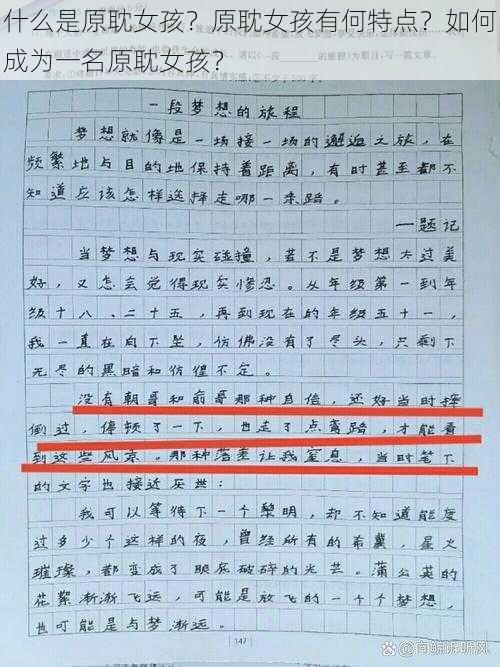 什么是原耽女孩？原耽女孩有何特点？如何
成为一名原耽女孩？
一段梦想的旅程
梦想就像是一场接一场的邂逅之旅，在
频繁地与目的地保持着距离，有时甚至都不
知道应该怎样选择走哪一条路。
——题记
当梦想与现实碰撞，若不是梦想太过美
好，又怎会觉得现实惨忍。从年级第一到年
级十八、二十五，再到现在的年级五十一，
我一直在向下坠，仿佛没有了尽头，只剩下
无尽的黑暗和彷徨不定。
没有朝哥和俞哥那种自信，还好当时摔
倒过，停顿了一下，也走了点弯路，才能看
到这些风景。那种落差让我窒息，当时笔下
的文字也接近厌世：
我可以等待下一个黎明，却不知道能度
过多少个这样的夜，曾经所有的希冀，星火
璀璨，都变成了脆晃破碎的光芒。蒲公英的
花絮渐渐飞远，可能是放飞的一个个梦想，
也可能是与梦渐远。
147
百家号/南鲸听听风